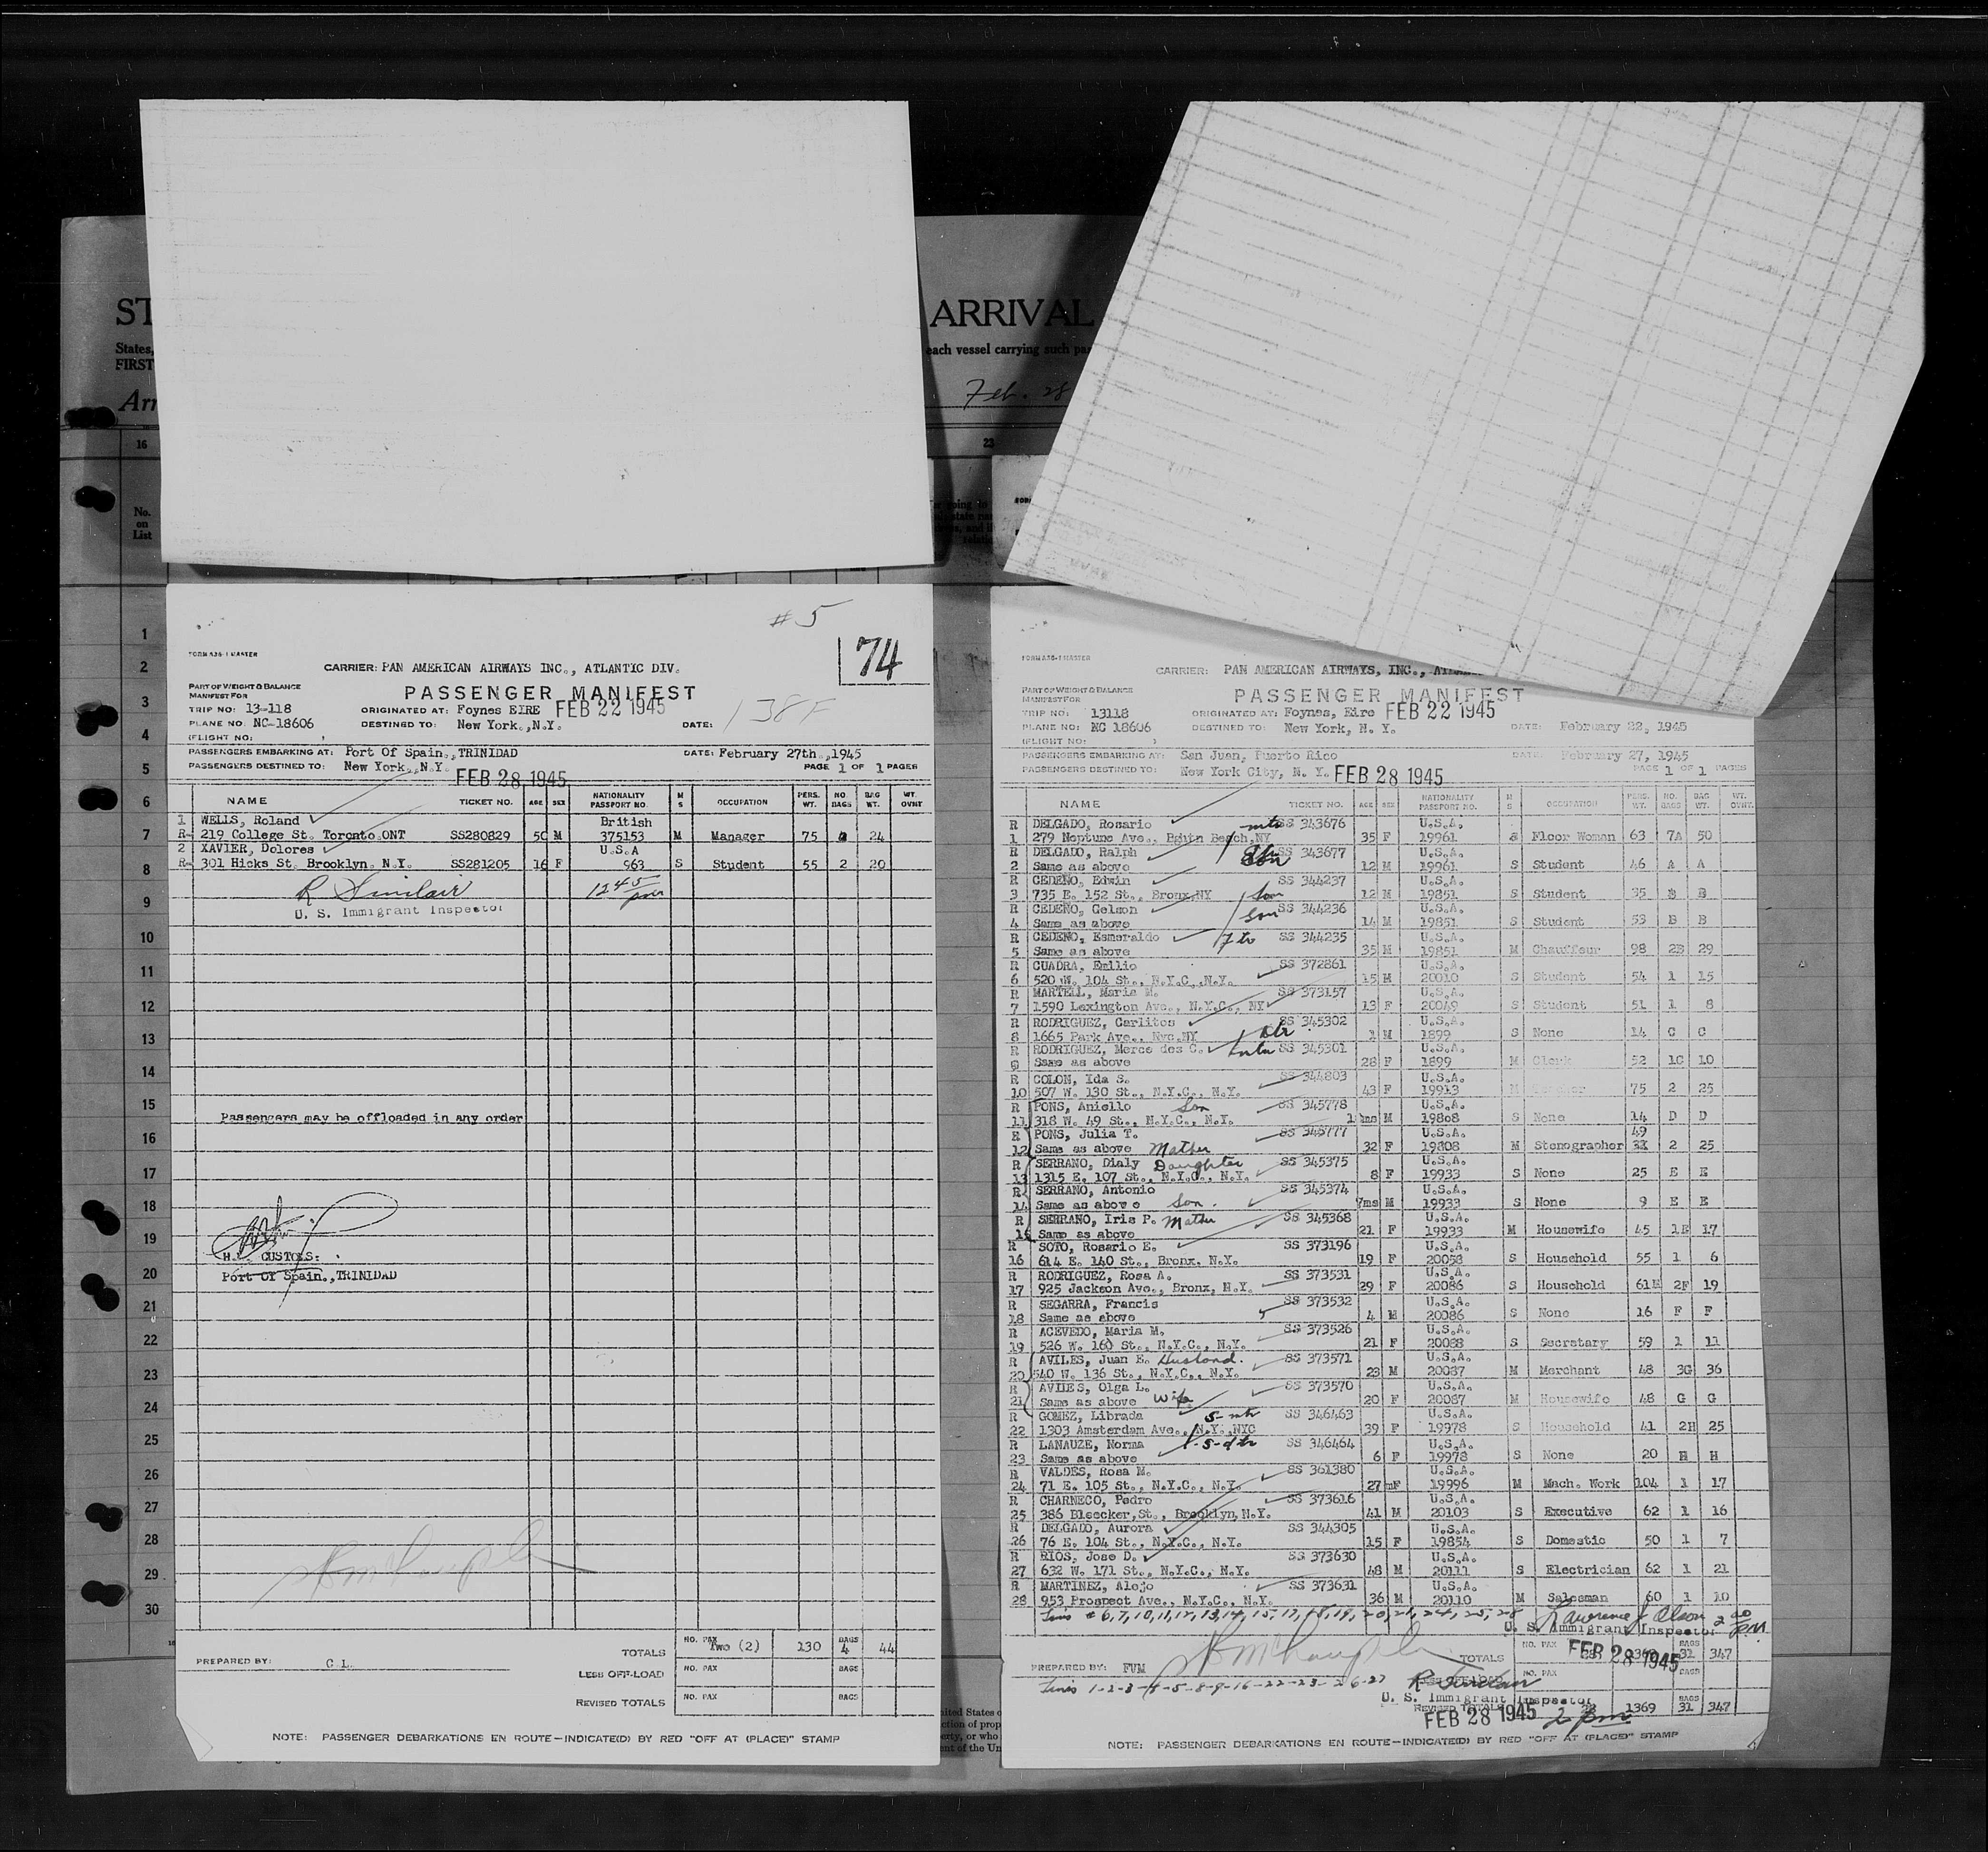 ST
ARRIVAL
States,
FIRST
each vessel carrying such
Arr
Feb. 28
16
23
No.
on
List
1
2
3
4
5
6
7
8
9
10
11
12
13
14
15
16
17
18
19
20
21
22
23
24
25
26
27
28
29
30
# 5
74
FORM 535-1 MASTER
CARRIER: PAN AMERICAN AIRWAYS INC., ATLANTIC DIV.
PART OF WEIGHT & BALANCE
MANIFEST FOR
PASSENGER MANIFEST
TRIP NO: 13-118 ORIGINATED AT: Foynes EIRE FEB 22 1945
PLANE NO. NC-18606 DESTINED TO: New York.,N.Y. DATE: 138F
(FLIGHT NO: )
PASSENGERS EMBARKING AT: Port Of Spain.,TRINIDAD DATE: February 27th.,1945
PASSENGERS DESTINED TO: New York.,N.Y. FEB 28 1945 PAGE 1 OF 1 PAGES
NAME TICKET NO. AGE SEX NATIONALITY PASSPORT NO. M S OCCUPATION PERS. WT. NO. BAGS BAG WT. WT. OVNT
1 WELLS, Roland British
R- 219 College St. Toronto.ONT SS280829 50 M 375153 M Manager 75 2 24
2 XAVIER, Dolores U.S.A
R- 301 Hicks St. Brooklyn. N.Y. SS281205 16 F 963 S Student 55 2 20
R Sinclair 1245 pm
U. S. Immigrant Inspector
Passengers may be offloaded in any order
H. CUSTOMS:
Port Of Spain.,TRINIDAD
TOTALS NO. PAX Two (2) 130 BAGS 4 44
PREPARED BY: C.L.
LESS OFF-LOAD NO. PAX BAGS
REVISED TOTALS NO. PAX BAGS
NOTE: PASSENGER DEBARKATIONS EN ROUTE—INDICATE(D) BY RED "OFF AT (PLACE)" STAMP
FORM 535-1 MASTER
CARRIER: PAN AMERICAN AIRWAYS, INC.,
PART OF WEIGHT & BALANCE
MANIFEST FOR
PASSENGER MANIFEST
TRIP NO: 13118 ORIGINATED AT: Foynes, Eire FEB 22 1945
PLANE NO: NC 18606 DESTINED TO: New York, N. Y. DATE: February 22, 1945
(FLIGHT NO: )
PASSENGERS EMBARKING AT: San Juan, Puerto Rico DATE: February 27, 1945
PASSENGERS DESTINED TO: New York City, N. Y. FEB 28 1945 PAGE 1 OF 1 PAGES
NAME TICKET NO. AGE SEX NATIONALITY PASSPORT NO. M S OCCUPATION PERS. WT. NO. BAGS BAG WT. WT. OVNT.
R DELGADO, Rosario mth SS 343676 U.S.A.
1 279 Neptune Ave., Beach,NY 35 F 19961 S Floor Woman 63 7A 50
R DELGADO, Ralph Son SS 343677 U.S.A.
2 Same as above 12 M 19961 S Student 46 A A
R CEDEÑO, Edwin SS 344237 U.S.A.
3 735 E. 152 St., Bronx,NY Son 12 M 19851 S Student 35 B B
R CEDEÑO, Gelson Son SS 344236 U.S.A.
4 Same as above 14 M 19851 S Student 53 B B
R CEDEÑO, Esmeraldo SS 344235 U.S.A.
5 Same as above 35 M 19851 M Chauffeur 98 2B 29
R CUADRA, Emilio SS 372861 U.S.A.
6 520 W. 104 St., N.Y.C.,N.Y. 15 M 20010 S Student 54 1 15
R MARTELL, Maria M. SS 373157 U.S.A.
7 1590 Lexington Ave., N.Y.C., NY 13 F 20049 S Student 51 1 8
R RODRIGUEZ, Carlitos SS 345302 U.S.A.
8 1665 Park Ave., Nyc.NY 1 M 1899 S None 14 C C
R RODRIGUEZ, Merce des C. SS 345301 U.S.A.
9 Same as above 28 F 1899 M Clerk 52 1C 10
R COLON, Ida S. SS 344803 U.S.A.
10 507 W. 130 St., N.Y.C., N.Y. 43 F 19913 M 75 2 25
R PONS, Aniello Son SS 345778 U.S.A.
11 318 W. 49 St., N.Y.C., N.Y. M 19808 S None 14 D D
R PONS, Julia T. SS 345777 U.S.A. 49
12 Same as above Mother 32 F 19808 M Stenographer 2 25
R SERRANO, Dialy Daughter SS 345375 U.S.A.
13 1315 E. 107 St., N.Y.C., N.Y. 8 F 19933 S None 25 E E
R SERRANO, Antonio SS 345374 U.S.A.
14 Same as above Son. 7ms M 19933 S None 9 E E
R SERRANO, Iris P. Mother SS 345368 U.S.A.
15 Same as above 21 F 19933 M Housewife 45 1E 17
R SOTO, Rosario E. SS 373196 U.S.A.
16 614 E. 140 St., Bronx. N.Y. 19 F 20058 S Household 55 1 6
R RODRIGUEZ, Rosa A. SS 373531 U.S.A.
17 925 Jackson Ave., Bronx, N.Y. 29 F 20086 S Household 61 2F 19
R SEGARRA, Francis SS 373532 U.S.A.
18 Same as above 4 M 20086 S None 16 F F
R ACEVEDO, Maria M. SS 373526 U.S.A.
19 526 W. 160 St., N.Y.C., N.Y. 21 F 20088 S Secretary 59 1 11
R AVILES, Juan E. Husband. SS 373571 U.S.A.
20 540 W. 136 St., N.Y.C., N.Y. 23 M 20087 M Merchant 48 3G 36
R AVILES, Olga L. SS 373570 U.S.A.
21 Same as above Wife 20 F 20087 M Housewife 48 G G
R GOMEZ, Librada S-mth SS 346463 U.S.A.
22 1303 Amsterdam Ave., N.Y.,NYC 39 F 19978 S Household 41 2H 25
R LANAUZE, Norma S-dtr SS 346464 U.S.A.
23 Same as above 6 F 19978 S None 20 H H
R VALDES, Rosa M. SS 361380 U.S.A.
24 71 E. 105 St., N.Y.C., N.Y. 27 F 19996 M Mach. Work 104 1 17
R CHARNECO, Pedro SS 373616 U.S.A.
25 386 Bleecker,St., Brooklyn,N.Y. 41 M 20103 S Executive 62 1 16
R DELGADO, Aurora SS 344305 U.S.A.
26 76 E. 104 St., N.Y.C., N.Y. 15 F 19854 S Domestic 50 1 7
R RIOS, Jose D. SS 373630 U.S.A.
27 632 W. 171 St., N.Y.C., N.Y. 48 M 20111 S Electrician 62 1 21
R MARTINEZ, Alejo SS 373631 U.S.A.
28 953 Prospect Ave., N.Y.C., N.Y. 36 M 20110 M Salesman 60 1 10
Lines # 6, 7, 10, 11, 12, 13, 14, 15, 17, 18, 19, 20, 21, 24, 25, 28 Lawrence J. Olson 2 00 PM
U. S. Immigrant Inspector
TOTALS NO. PAX 28 1369 BAGS 31 347
FEB 28 1945
PREPARED BY: FVM
Lines 1-2-3-4-5-8-9-16-22-23-26-27 R Sinclair
U. S. Immigrant Inspector
REVISED TOTALS 28 1369 BAGS 31 347
FEB 28 1945 2 pm
NOTE: PASSENGER DEBARKATIONS EN ROUTE—INDICATE(D) BY RED "OFF AT (PLACE)" STAMP